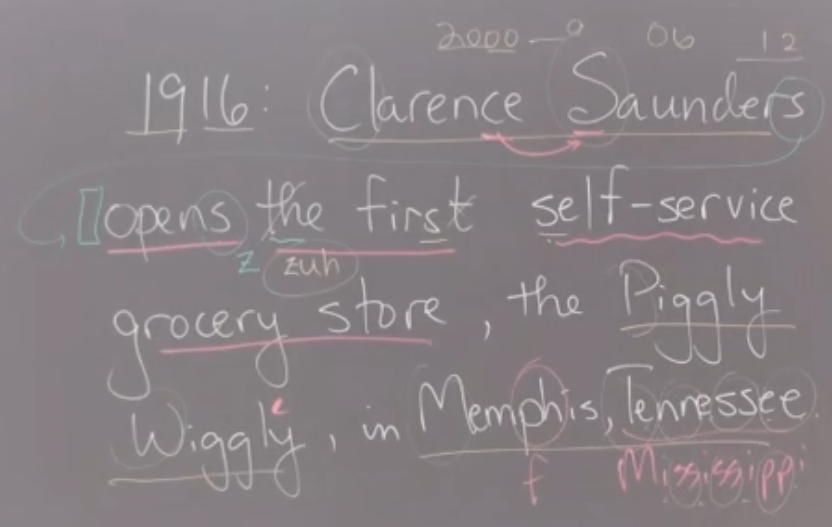 2000 — 9 06 12
1916: Clarence Saunders
opens the first self-service
z zuh
grocery store, the Piggly
Wiggly, in Memphis, Tennessee.
f Mississippi